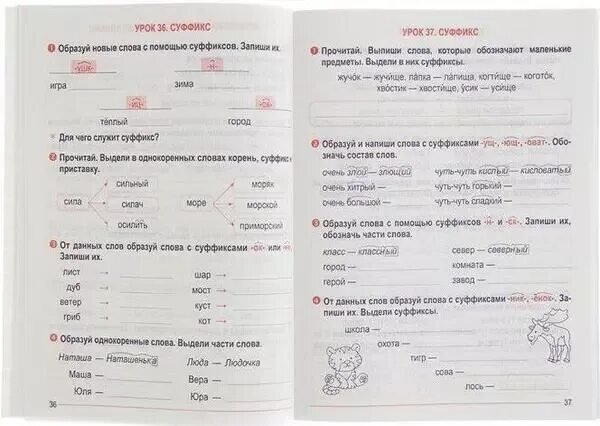 УРОК 36. СУФФИКС
1 Образуй новые слова с помощью суффиксов. Запиши их.
-ушк- -н-
игра зима
-иц- -ск-
тёплый город
* Для чего служит суффикс?
2 Прочитай. Выдели в однокоренных словах корень, суффикс
приставку.
сильный моряк
сила силач море морской
осилить приморский
3 От данных слов образуй слова с суффиксами -ок- или
Запиши их.
лист шар
дуб мост
ветер куст
гриб кот
4 Образуй однокоренные слова. Выдели части слова.
Наташа — Наташенька Люда — Людочка
Маша — Вера —
Юля — Юра —
36
УРОК 37. СУФФИКС
1 Прочитай. Выпиши слова, которые обозначают маленькие
предметы. Выдели в них суффиксы.
жучок — жучище, лапка — лапища, когтище — коготок,
хвостик — хвостище, усик — усище
2 Образуй и напиши слова с суффиксами -ущ-, -ющ-, -оват-. Обо-
значь состав слов.
очень злой — злющий чуть-чуть кислый — кисловатый
очень хитрый — чуть-чуть горький —
очень большой — чуть-чуть сладкий —
3 Образуй слова с помощью суффиксов -н- и -ск-. Запиши их,
обозначь части слова.
класс — классный север — северный
город — комната —
герой — завод —
4 От данных слов образуй слова с суффиксами -ник-, -ёнок-. За-
пиши их. Выдели суффиксы.
школа —
охота —
тигр —
сова —
лось —
37